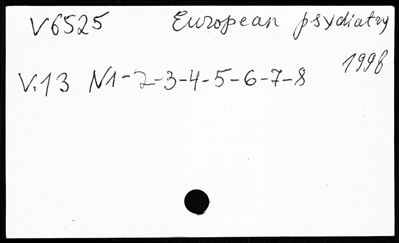 V6525 European psydiatry
1998
V.13 N1-2-3-4-5-6-7-8